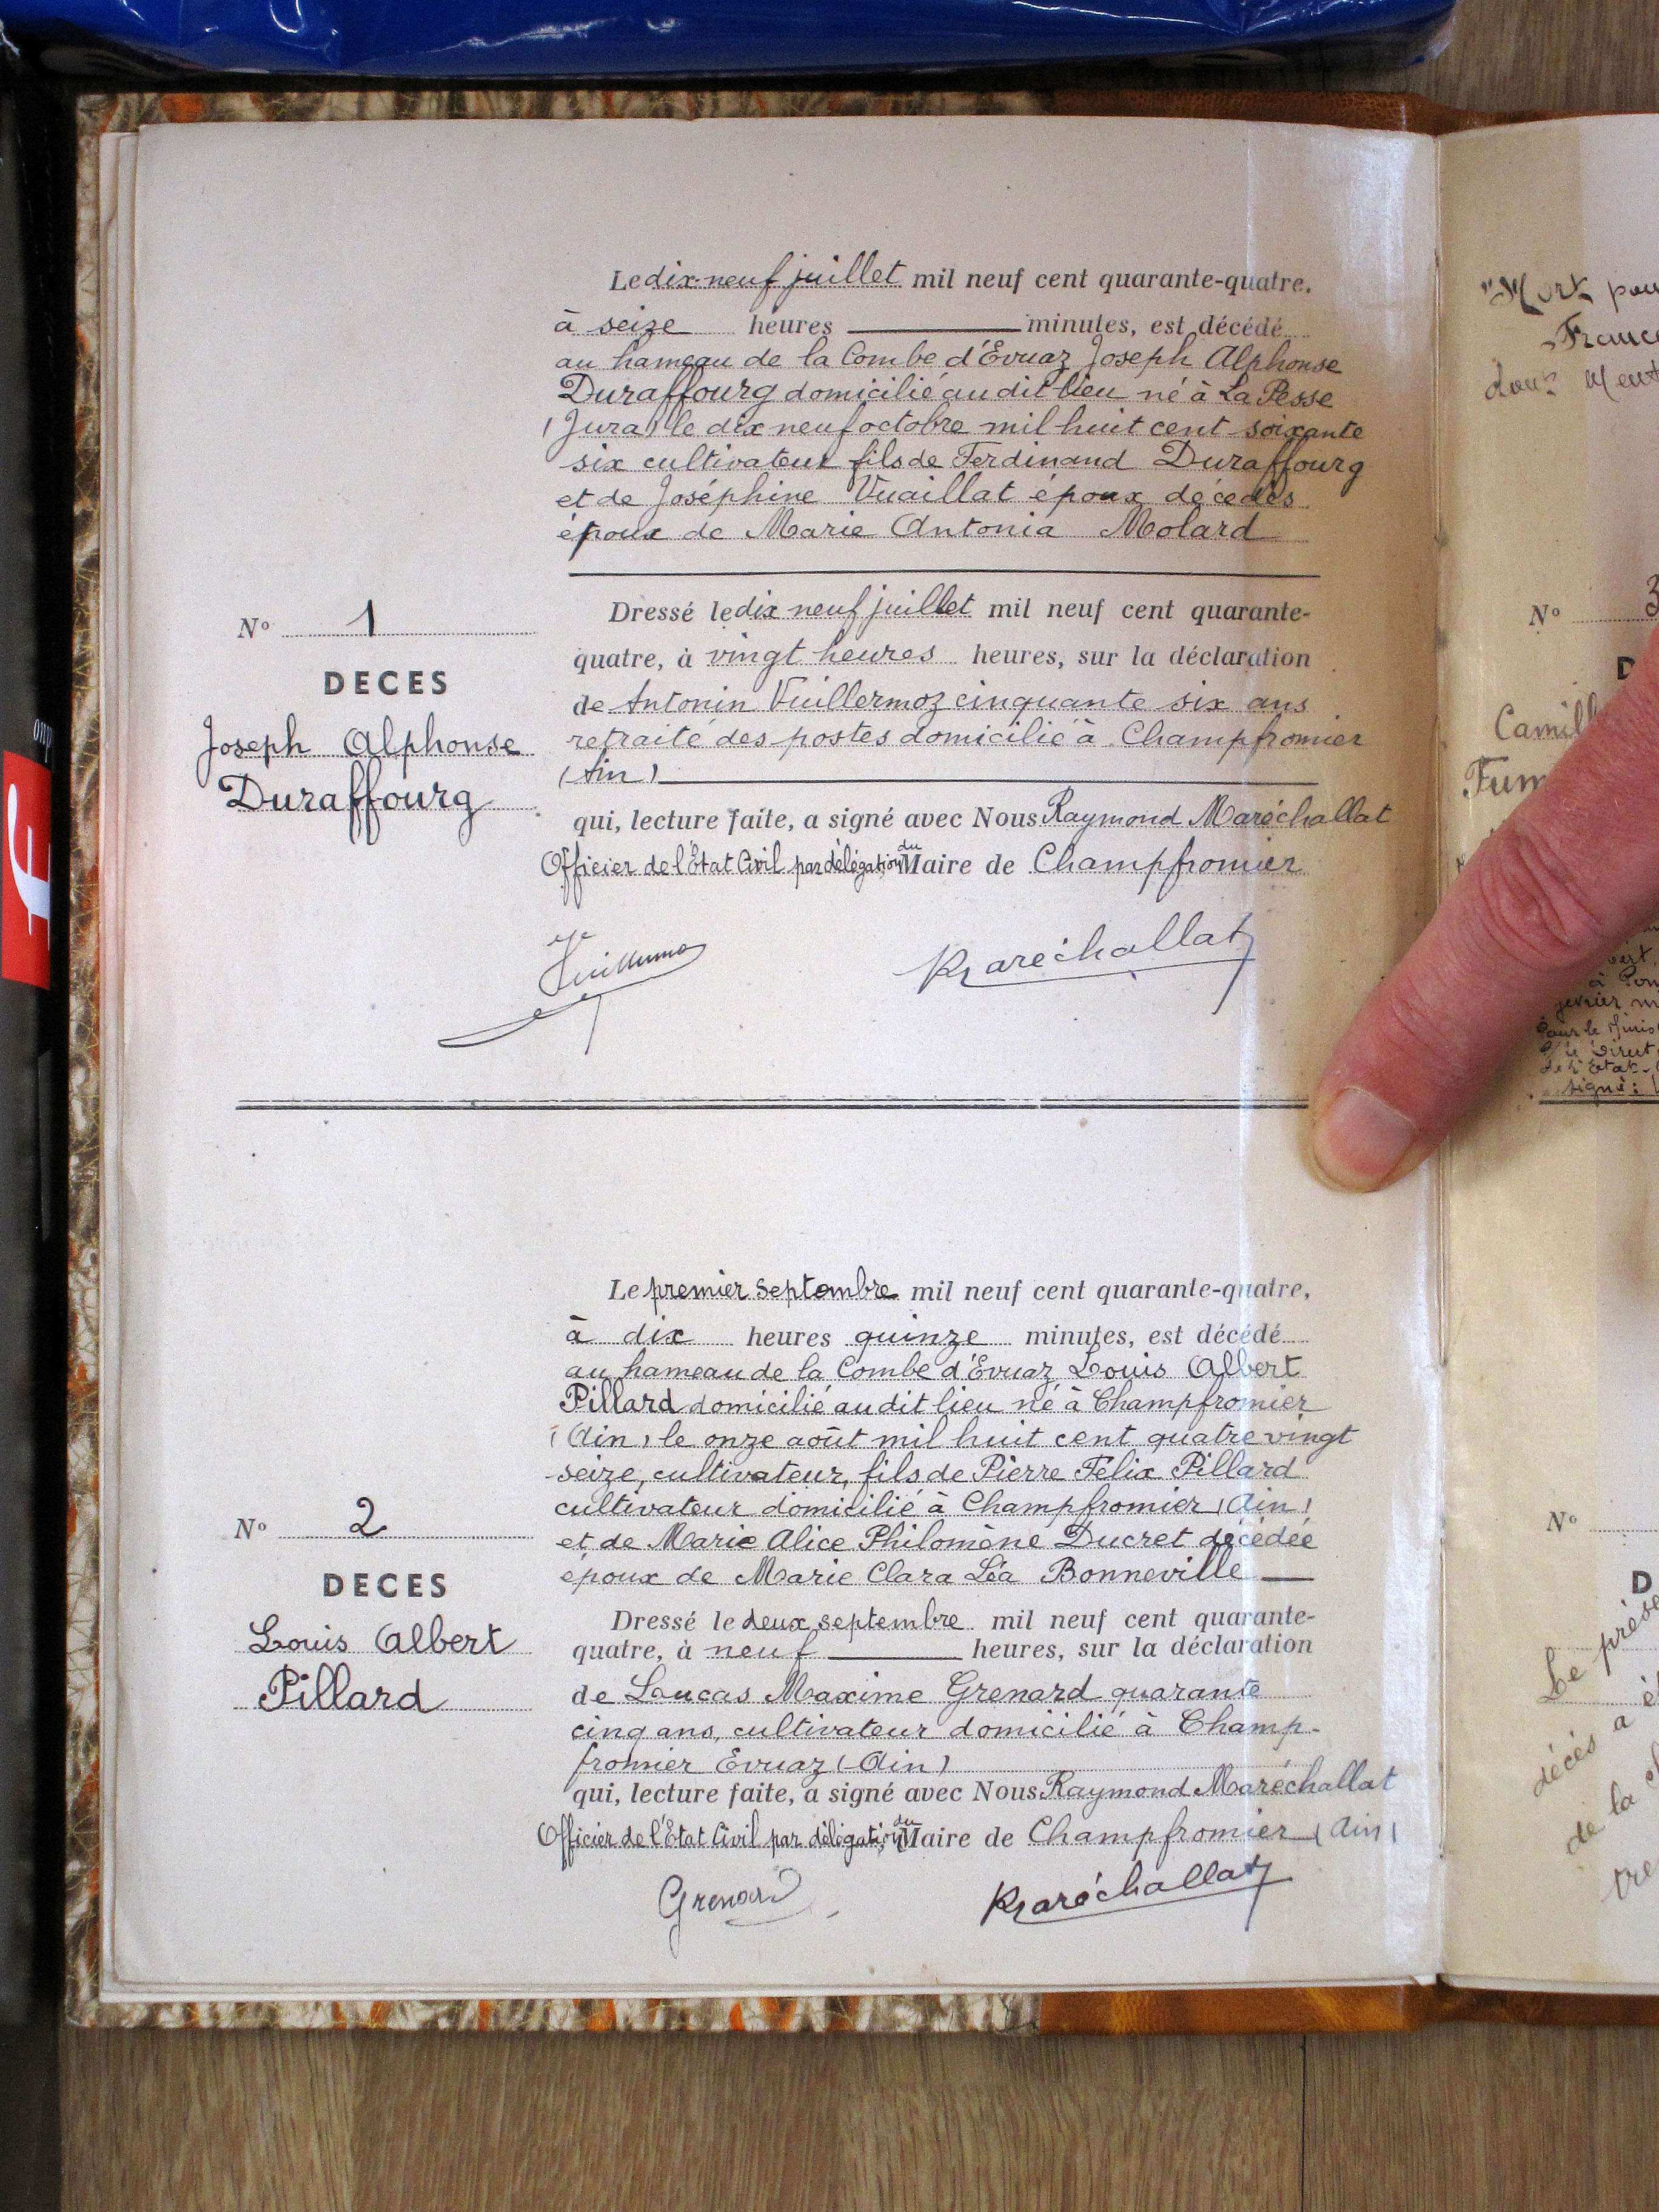 Le dix-neuf juillet mil neuf cent quarante-quatre,
à seize heures minutes, est décédé
au hameau de la Combe d'Evuaz Joseph Alphonse
Duraffourg domicilié au dit lieu né à La Pesse
(Jura) le dix neuf octobre mil huit cent soixante
six cultivateur fils de Ferdinand Duraffourg
et de Joséphine Vuaillat époux décédés
époux de Marie Antonia Molard
Nº 1
DECES
Joseph Alphonse
Duraffourg
Dressé le dix neuf juillet mil neuf cent quarante-
quatre, à vingt heures heures, sur la déclaration
de Antonin Vuillermoz cinquante six ans
retraité des postes domicilié à Champfromier
(Ain)
qui, lecture faite, a signé avec Nous Raymond Maréchallat
Officier de l'Etat Civil par délégation du Maire de Champfromier
Maréchallat
Le premier septembre mil neuf cent quarante-quatre,
à dix heures quinze minutes, est décédé
au hameau de la Combe d'Evuaz Louis Albert
Pillard domicilié au dit lieu né à Champfromier
(Ain) le onze août mil huit cent quatre vingt
seize, cultivateur, fils de Pierre Félix Pillard
cultivateur domicilié à Champfromier (Ain)
et de Marie Alice Philomène Ducret décédée
époux de Marie Clara Léa Bonneville
Nº 2
DECES
Louis Albert
Pillard
Dressé le deux septembre mil neuf cent quarante-
quatre, à neuf heures, sur la déclaration
de Loucas Maxime Grenard quarante
cinq ans, cultivateur domicilié à Champ-
fromier Evuaz (Ain)
qui, lecture faite, a signé avec Nous Raymond Maréchallat
Officier de l'Etat Civil par délégation du Maire de Champfromier (Ain)
Grenard
Maréchallat
"Mort
France
Nº 3
Camill
Fum
signé:
Nº
D
Le
décès a
de la